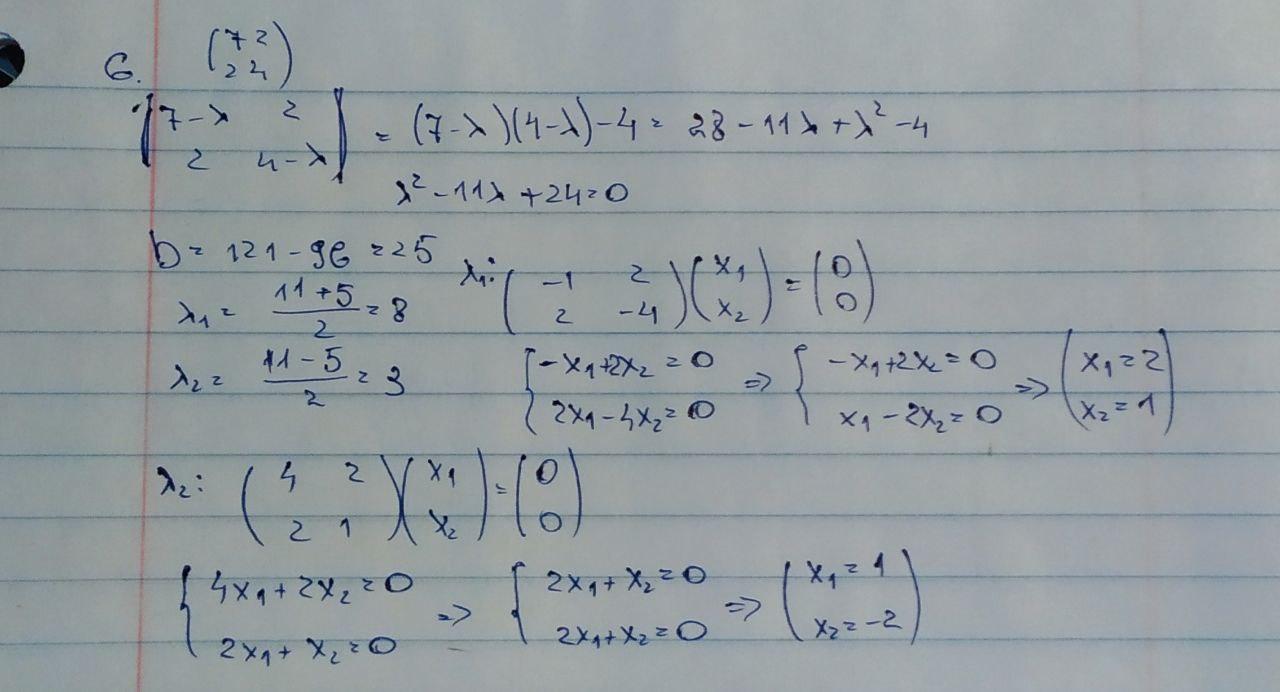 6. (7 2
2 4)
|7-λ 2
2 4-λ| = (7-λ)(4-λ)-4 = 28-11λ+λ²-4
λ²-11λ+24=0
D= 121-96 =25
λ₁= (11+5)/2 = 8
λ₂= (11-5)/2 = 3
λ₁: (-1 2
2 -4)(x₁
x₂) = (0
0)
{-x₁+2x₂=0
2x₁-4x₂=0 => {-x₁+2x₂=0
x₁-2x₂=0 => (x₁=2
x₂=1)
λ₂: (4 2
2 1)(x₁
x₂)=(0
0)
{4x₁+2x₂=0
2x₁+x₂=0 => {2x₁+x₂=0
2x₁+x₂=0 => (x₁=1
x₂=-2)